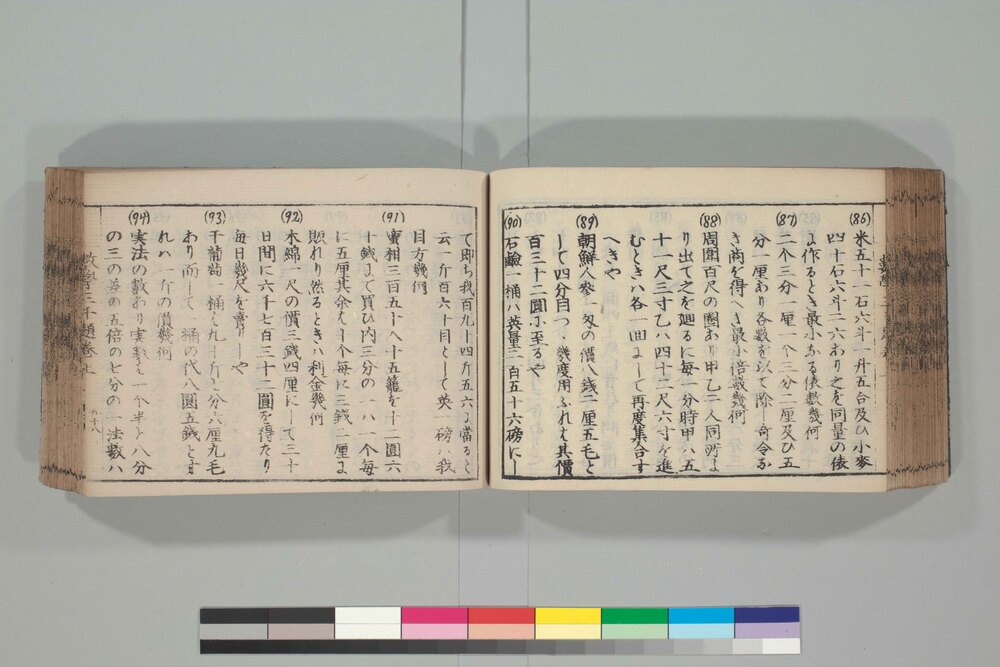 (86)
米五十一石六斗一升五合及ひ小麥
四十石六斗二六あり之を同量の俵
よ作るとき最小なる俵數幾何
(87)
二个三分一厘一个三分二厘及ひ五
分一厘あり各數を以て除し奇令る
き商を得へき最小倍數幾何
(88)
周囲百尺の圏あり甲乙二人同所よ
り出て之を廻るに毎一分時甲ハ五
十一尺三寸乙ハ四十三尺六寸を進
むときハ各一回よして再度集合す
へきや
(89)
朝鮮人參一匁の價八錢二厘五毛と
して四分目つゝ幾度用ふれは其價
百三十二圓に至るや
(90)
石鹼一桶ハ英量二百五十六磅にし
て即ち我百九十四斤五六に當ると
云一斤百六十目として英一磅ハ我
目方幾何
(91)
蜜柑三百五十八ヘ十五籠を十二圓六
十錢よて買ひ内三分の一ハ一个毎
に五厘其余ハ十个毎に三錢二厘よ
賬れり然るときハ利金幾何
(92)
木綿一尺の價三錢四厘にして三十
日間に六千七百三十二圓を得たり
毎日幾尺を賣りしや
(93)
干葡萄一桶よ九十斤と分六厘九毛
あり而して一桶の代八圓五錢とす
れハ一斤の價幾何
(94)
実法の數あり実數ハ一个半と八分
の三の差の五倍の七分の二法數ハ